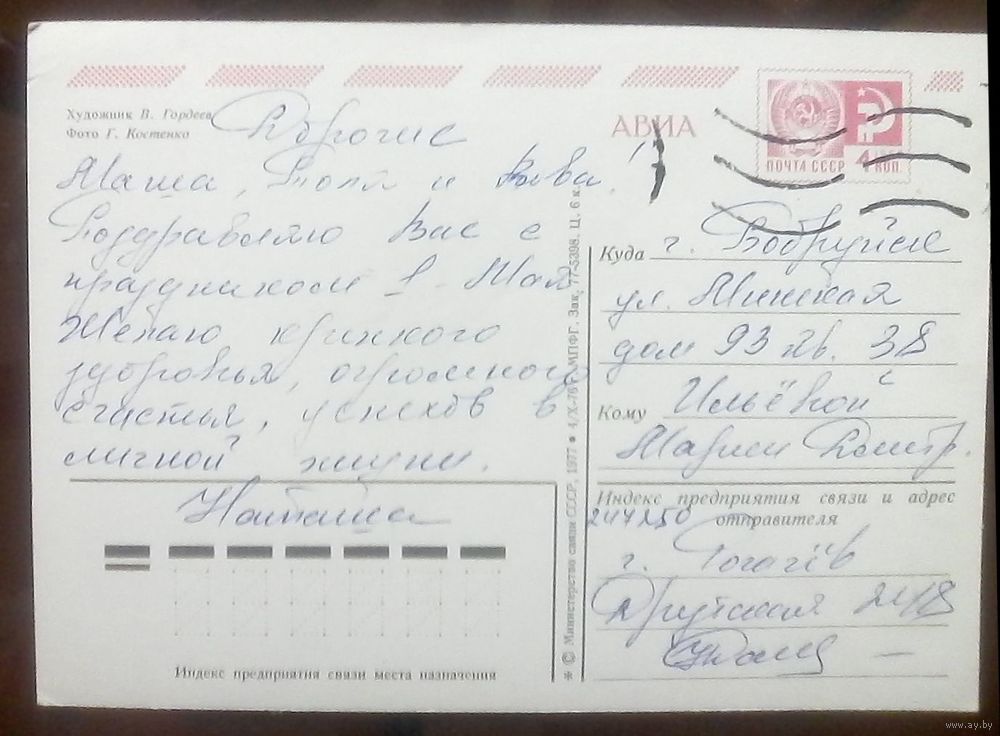 Художник В. Гордеев
Фото Г. Костенко
Дорогие
Маша, Толя и Вова!
Поздравляю Вас с
праздником 1 Мая
Желаю крепкого
здоровья, огромного
счастья, успехов в
личной жизни.
Наташа
Индекс предприятия связи места назначения
* © Министерство связи СССР, 1977 * 4/X-76 г. МПФГ. Зак. 77-5398. Ц. 6 к.
АВИА
ПОЧТА СССР
4 КОП.
Куда г. Бобруйск
ул. Минская
дом 93 кв. 38
Кому Ильёвой
Марии Дмитр.
Индекс предприятия связи и адрес
отправителя
247250
г. Рогачёв
Друтская
www.ay.by